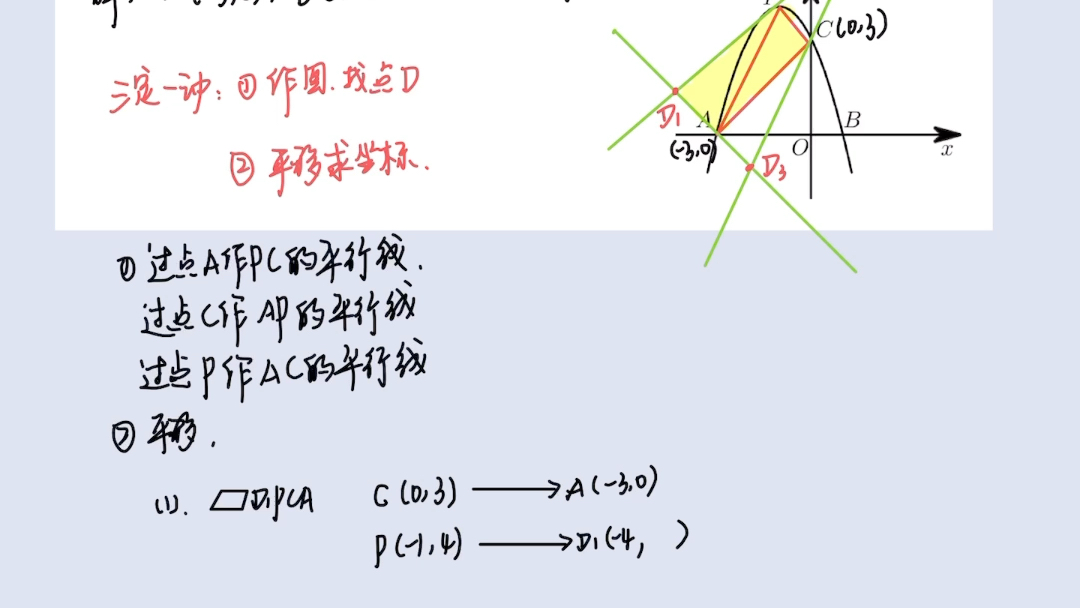 三定一动：① 作图.找点D
② 平移求坐标.
C(0,3)
D1
A
(-3,0)
B
O
x
D3
① 过点A作PC的平行线.
过点C作AP的平行线
过点P作AC的平行线
② 平移.
(1). ▱D1PCA C(0,3) ⟶ A(-3,0)
P(-1,4) ⟶ D1(-4, )